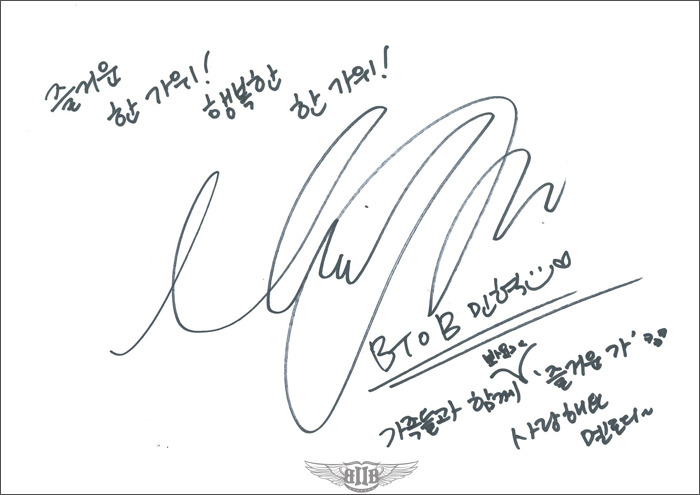 즐거운 한 가위! 행복한 한 가위!
BTOB 민혁
가족들과 함께 '즐거운 가'
사랑해 멜로디~
BTOB